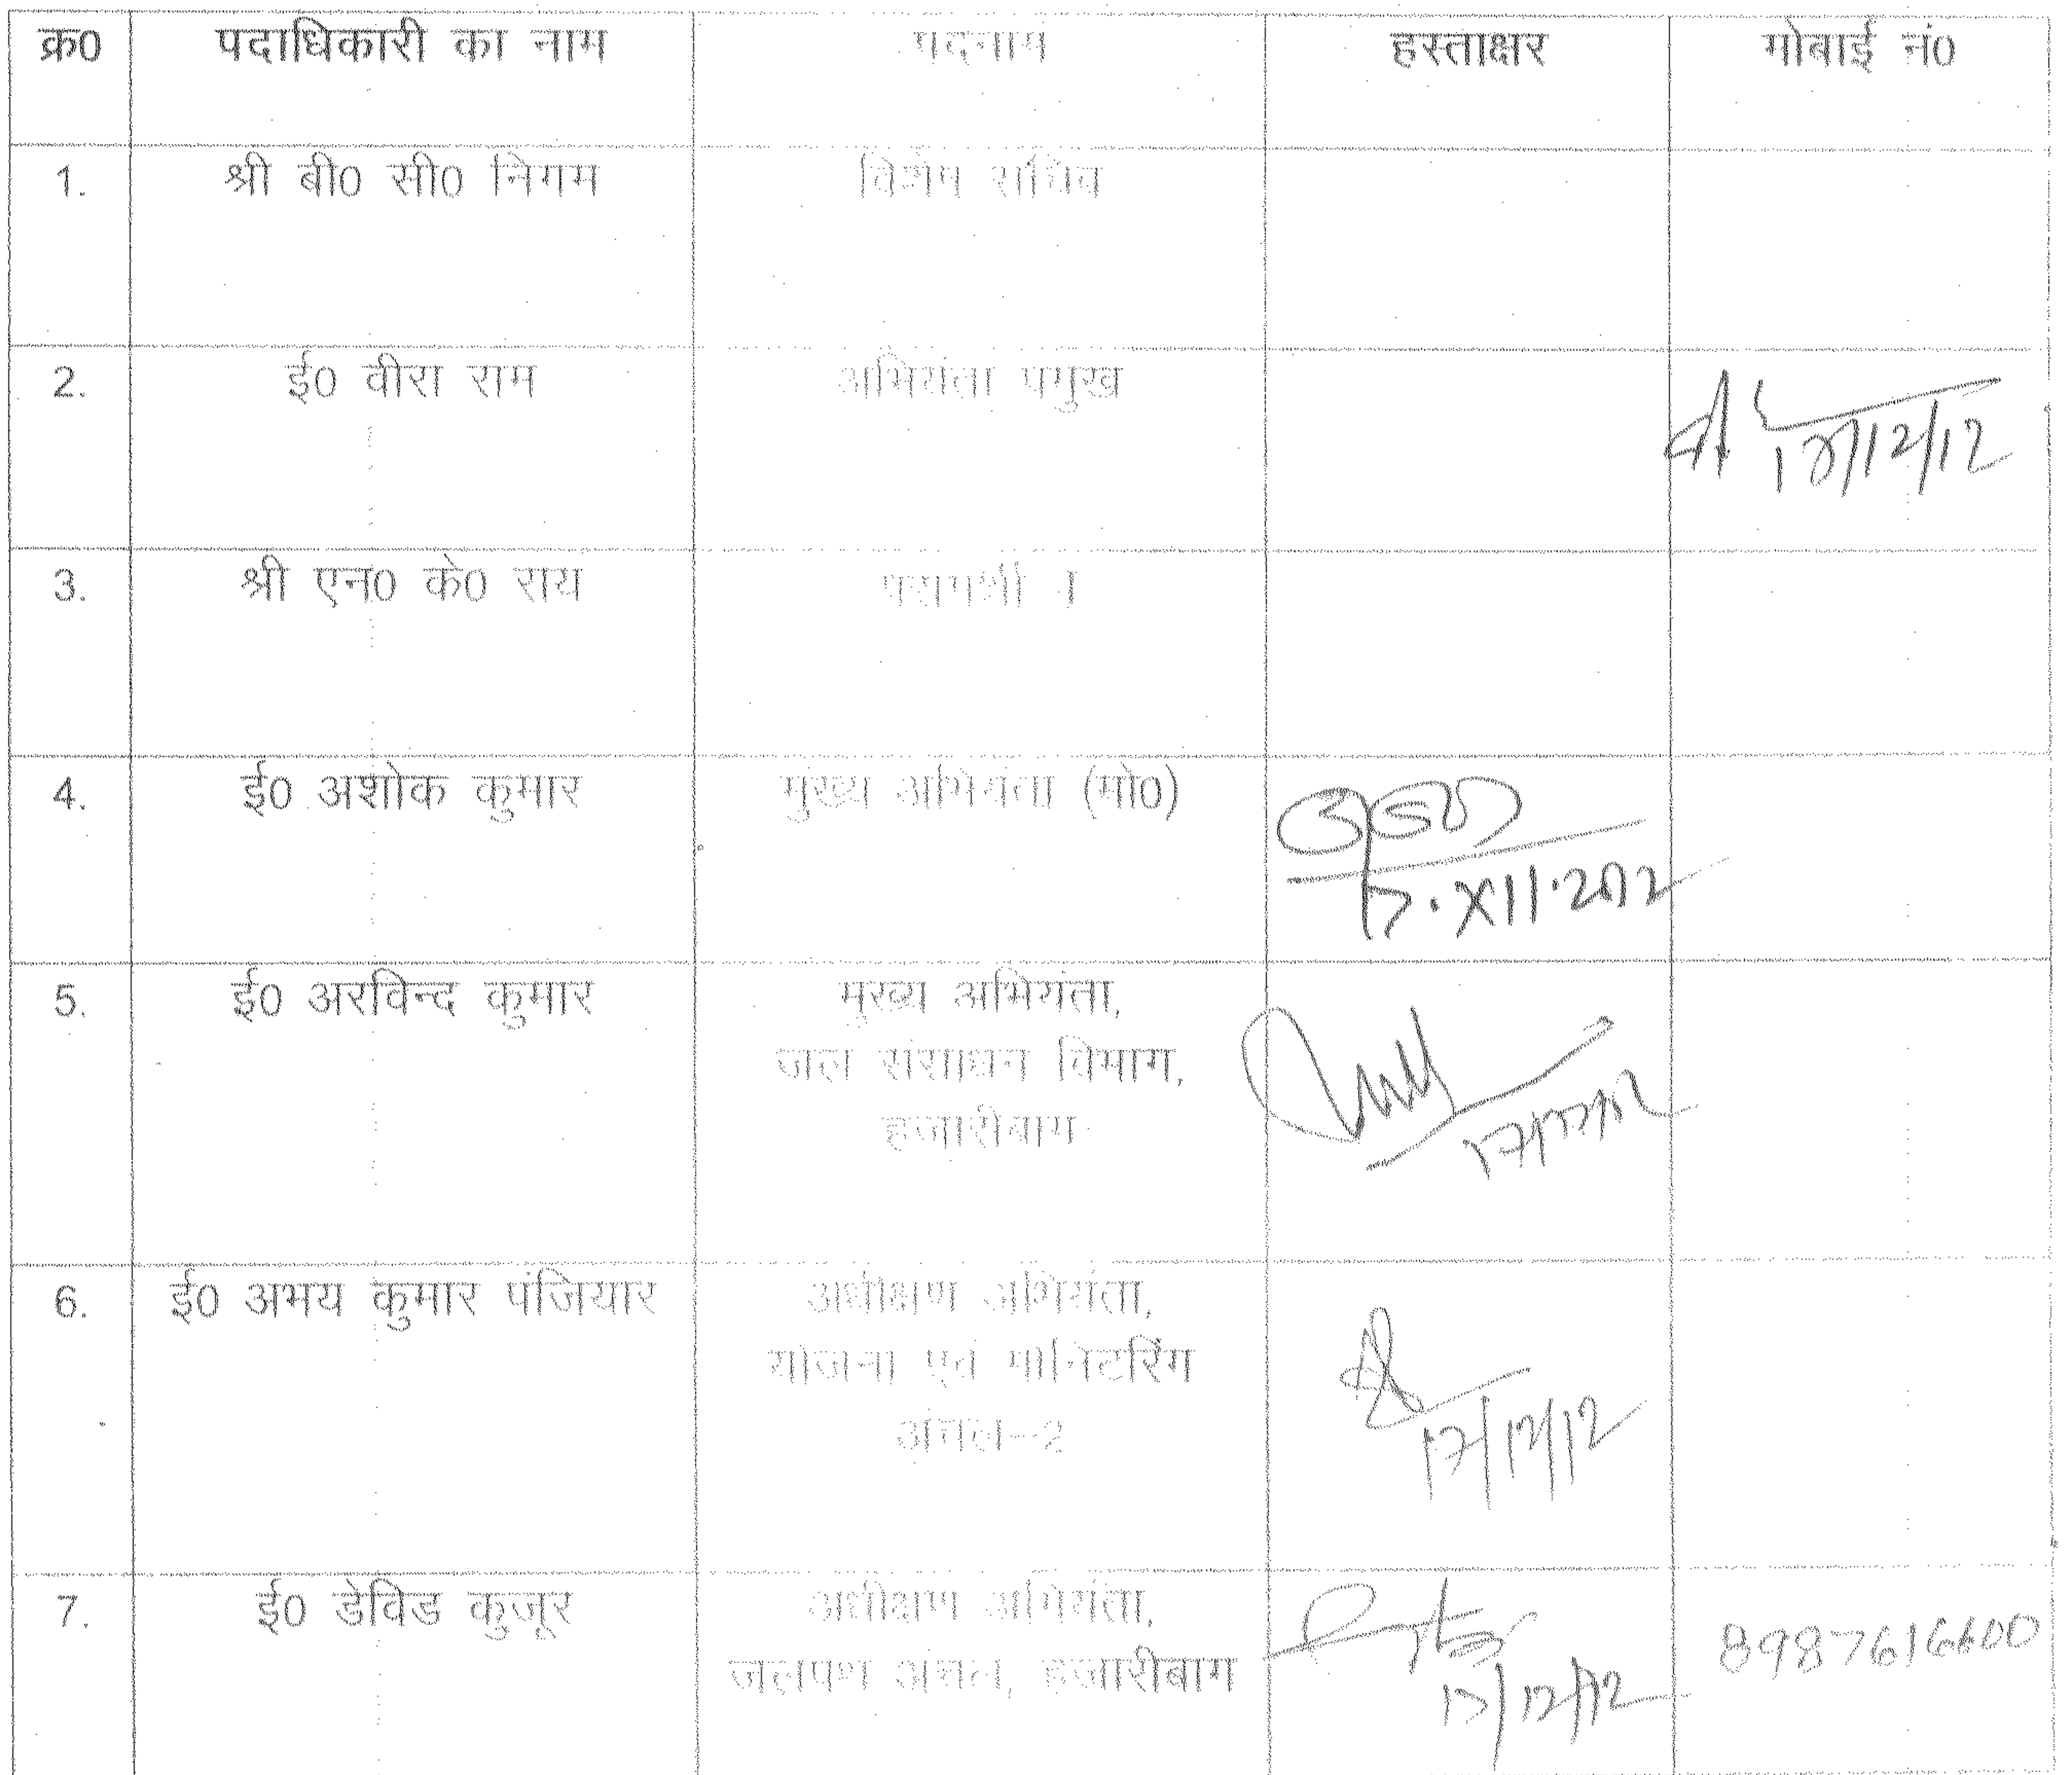 क्र0 पदाधिकारी का नाम पदनाम हस्ताक्षर मोबाई नं0
1. श्री बी0 सी0 निगम विशेष सचिव
2. ई0 वीरा राम अभियंता प्रमुख
17/12/12
3. श्री एन0 के0 राय
4. ई0 अशोक कुमार मुख्य अभियंता (मो0)
17.XII.2012
5. ई0 अरविन्द कुमार मुख्य अभियंता,
जल संसाधन विभाग,
हजारीबाग
17/12/12
6. ई0 अभय कुमार पंजियार अधीक्षण अभियंता,
योजना एवं मोनिटरिंग
अंचल-2
17/12/12
7. ई0 डेविड कुजूर अधीक्षण अभियंता, 8987616600
जलपथ अंचल, हजारीबाग
17/12/12